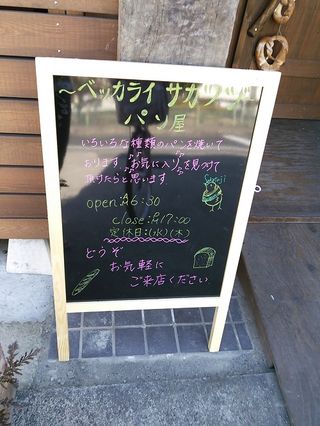 ～ベッカライ サカツジ～
パン屋
いろいろな種類のパンを焼いて
おります。お気に入りを見つけて
頂けたらと思います
open:A6:30
close:P17:00
定休日:(水)(木)
どうぞ
お気軽に
ご来店ください